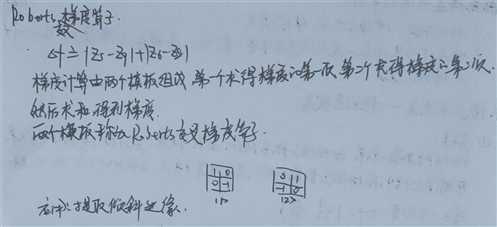 Roberts 梯度算子.
数
△f = |Z5-Z9|+|Z6-Z8|
梯度计算由两个模板组成,第一个求得梯度的第一项,第二个求得梯度的第二项.
然后求和,得到梯度.
两个模板称为Roberts交叉梯度算子.
1 0 0 1
0 -1 -1 0
1> 2>
提取倾斜边像.